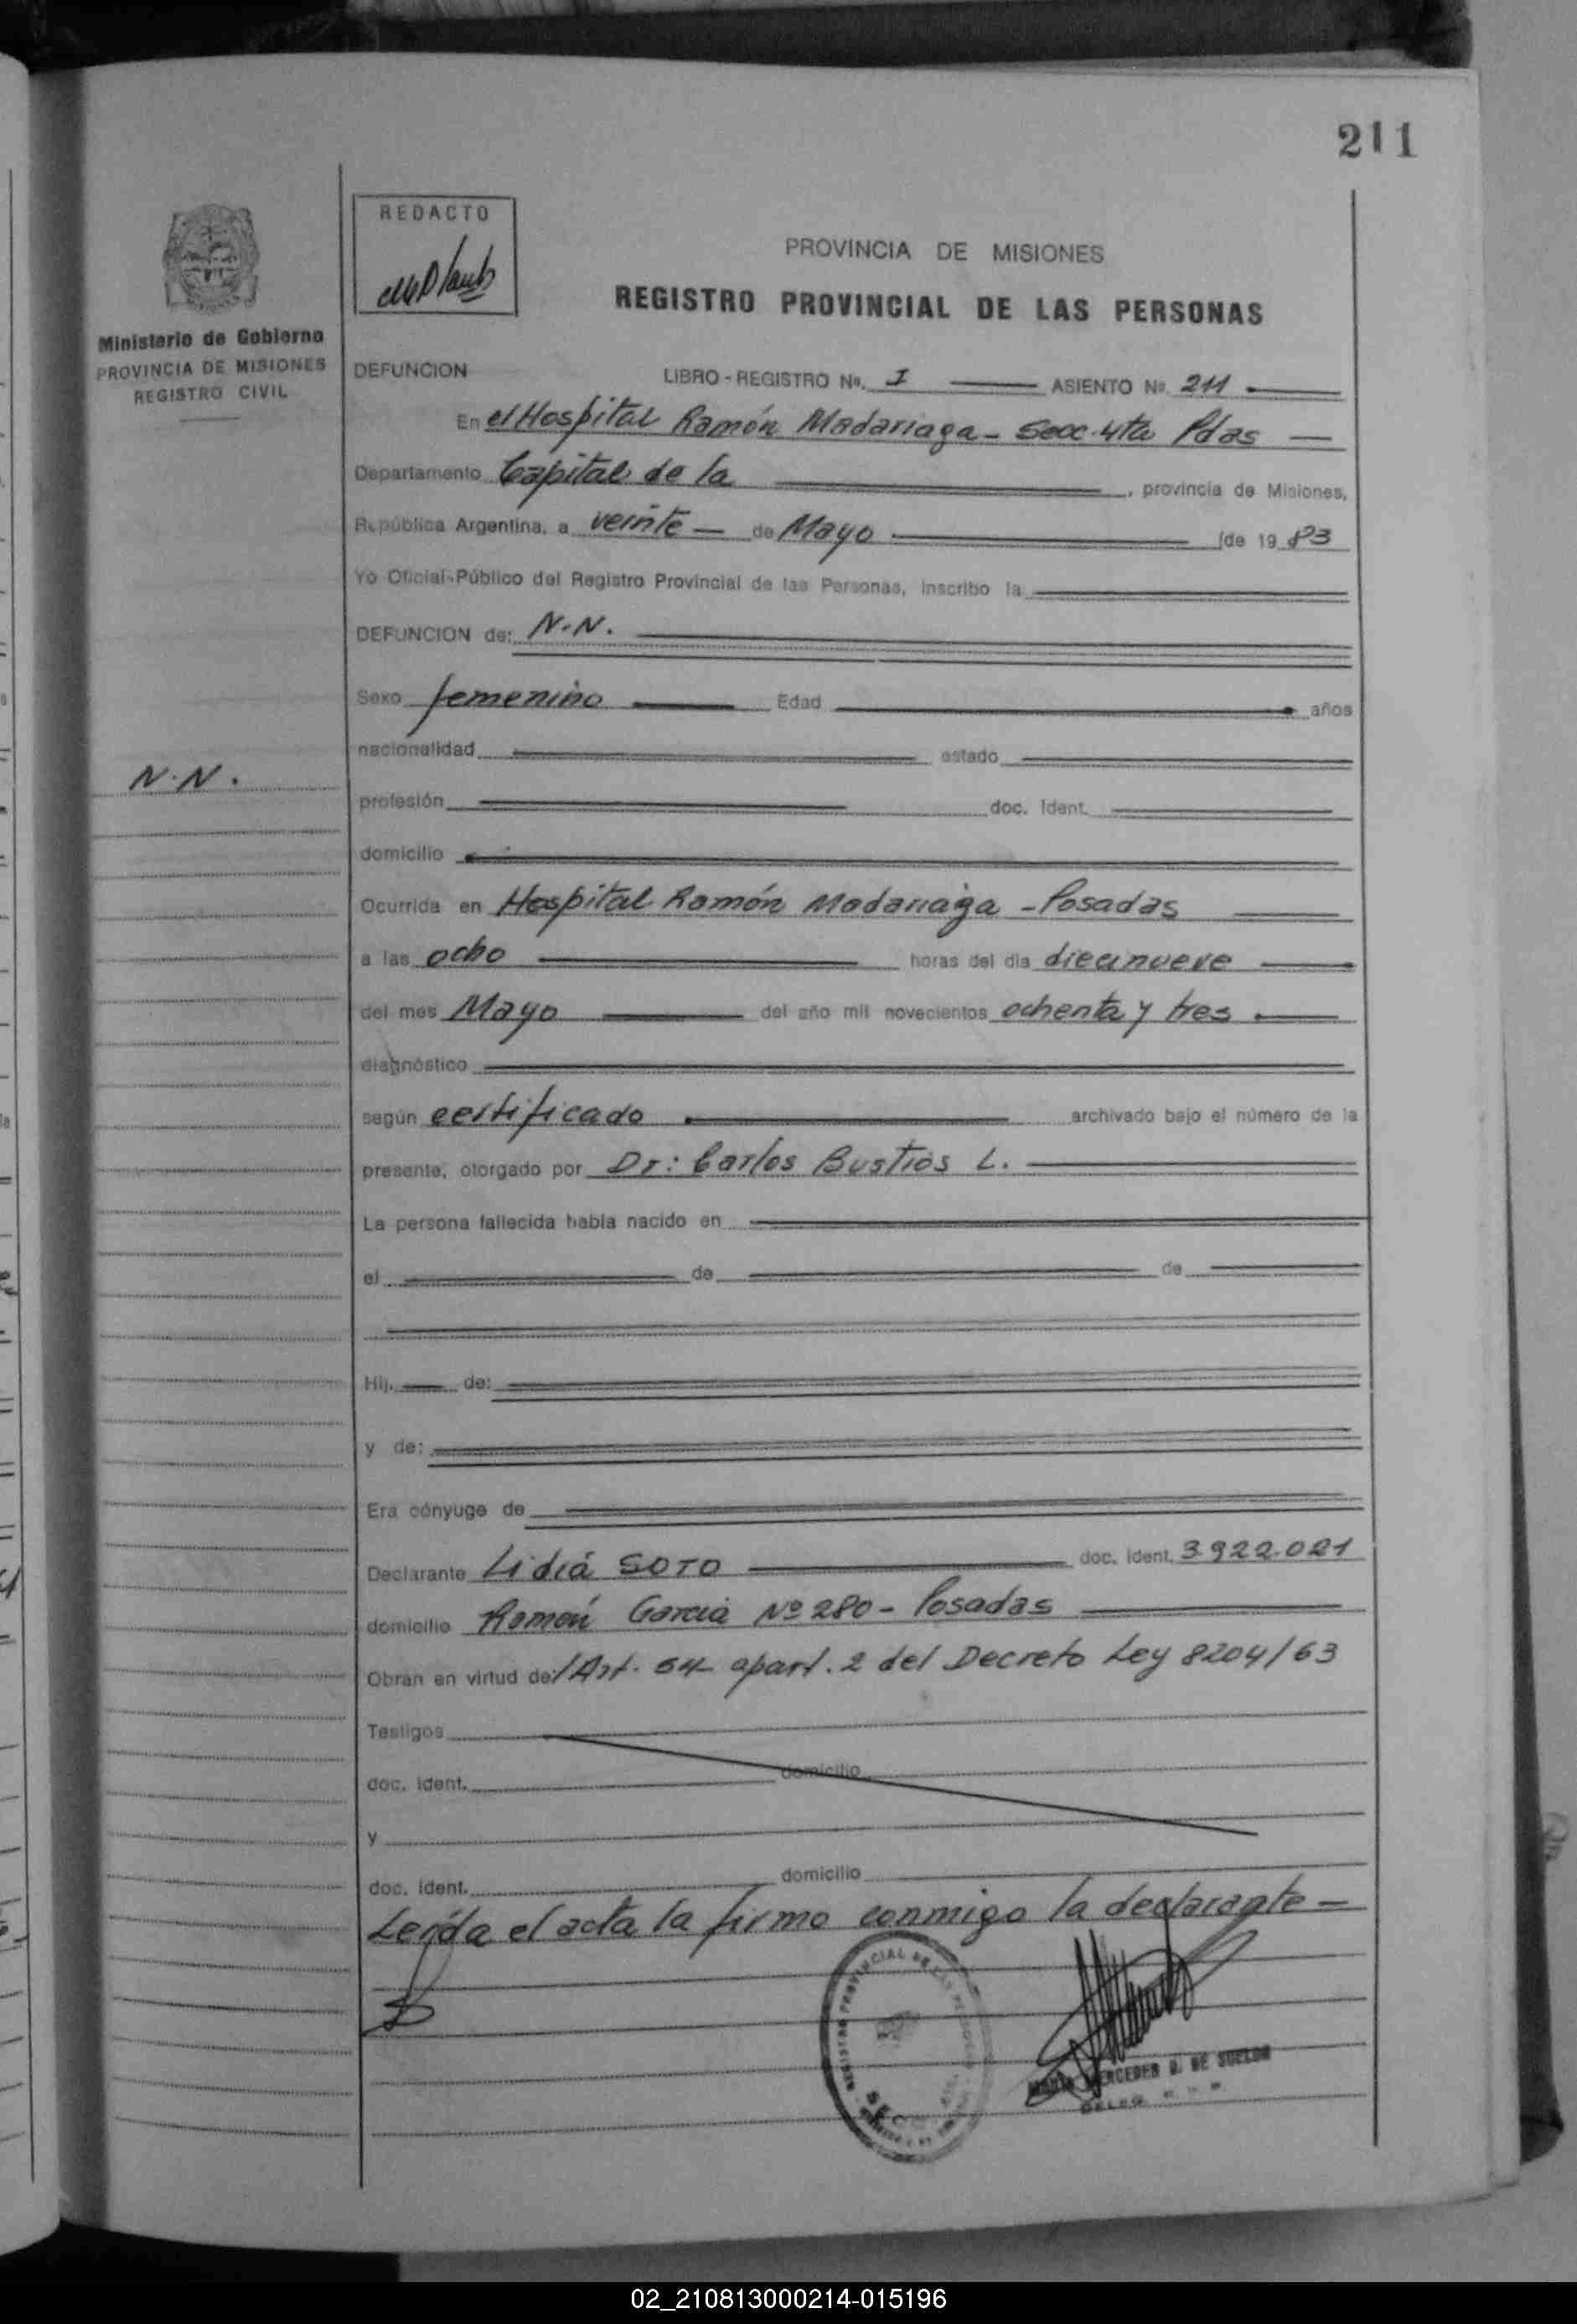 211
REDACTO
PROVINCIA DE MISIONES
REGISTRO PROVINCIAL DE LAS PERSONAS
Ministerio de Gobierno
PROVINCIA DE MISIONES
REGISTRO CIVIL
DEFUNCION LIBRO-REGISTRO Nº. I ASIENTO Nº. 211
En el Hospital Ramón Madariaga - Secc. 4ta Pdas
Departamento Capital de la , provincia de Misiones,
República Argentina, a veinte de Mayo de 1983
Yo Oficial Público del Registro Provincial de las Personas, inscribo la
DEFUNCION de: N.N.
Sexo femenino Edad años
nacionalidad estado
N.N.
profesión doc. Ident.
domicilio
Ocurrida en Hospital Ramón Madariaga - Posadas
a las ocho horas del día diecinueve
del mes Mayo del año mil novecientos ochenta y tres
diagnóstico
según certificado archivado bajo el número de la
presente, otorgado por Dr: Carlos Bustios L.
La persona fallecida había nacido en
el de de
Hij. de:
y de:
Era cónyuge de
Declarante Lidia SOTO doc. Ident. 3.922.021
domicilio Ramón García Nº 280 - Posadas
Obran en virtud de: Art. 54 apart. 2 del Decreto Ley 8204/63
Testigos
doc. Ident. domicilio
y
doc. Ident. domicilio
Leída el acta la firmo conmigo la declarante -
REGISTRO PROVINCIAL DE LAS PERSONAS
MERCEDES D. DE
02_210813000214-015196